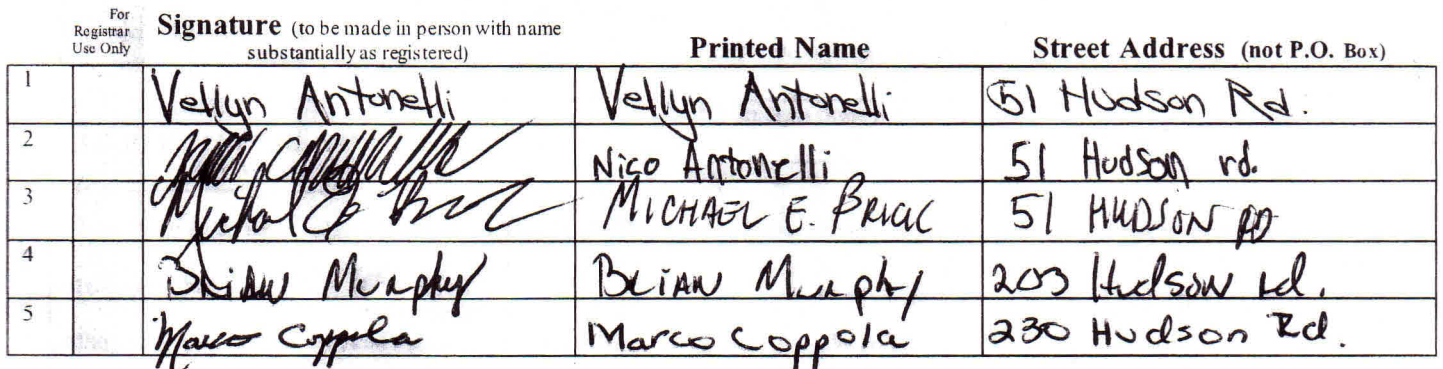 For Registrar Use Only
Signature (to be made in person with name substantially as registered)
Printed Name
Street Address (not P.O. Box)
1 Vellyn Antonelli Vellyn Antonelli 51 Hudson Rd.
2 Nico Antonelli 51 Hudson rd.
3 Michael E MICHAEL E. 51 HUDSON RD
4 Brian Murphy Brian Murphy 203 Hudson rd.
5 Marco Coppola Marco Coppola 230 Hudson Rd.